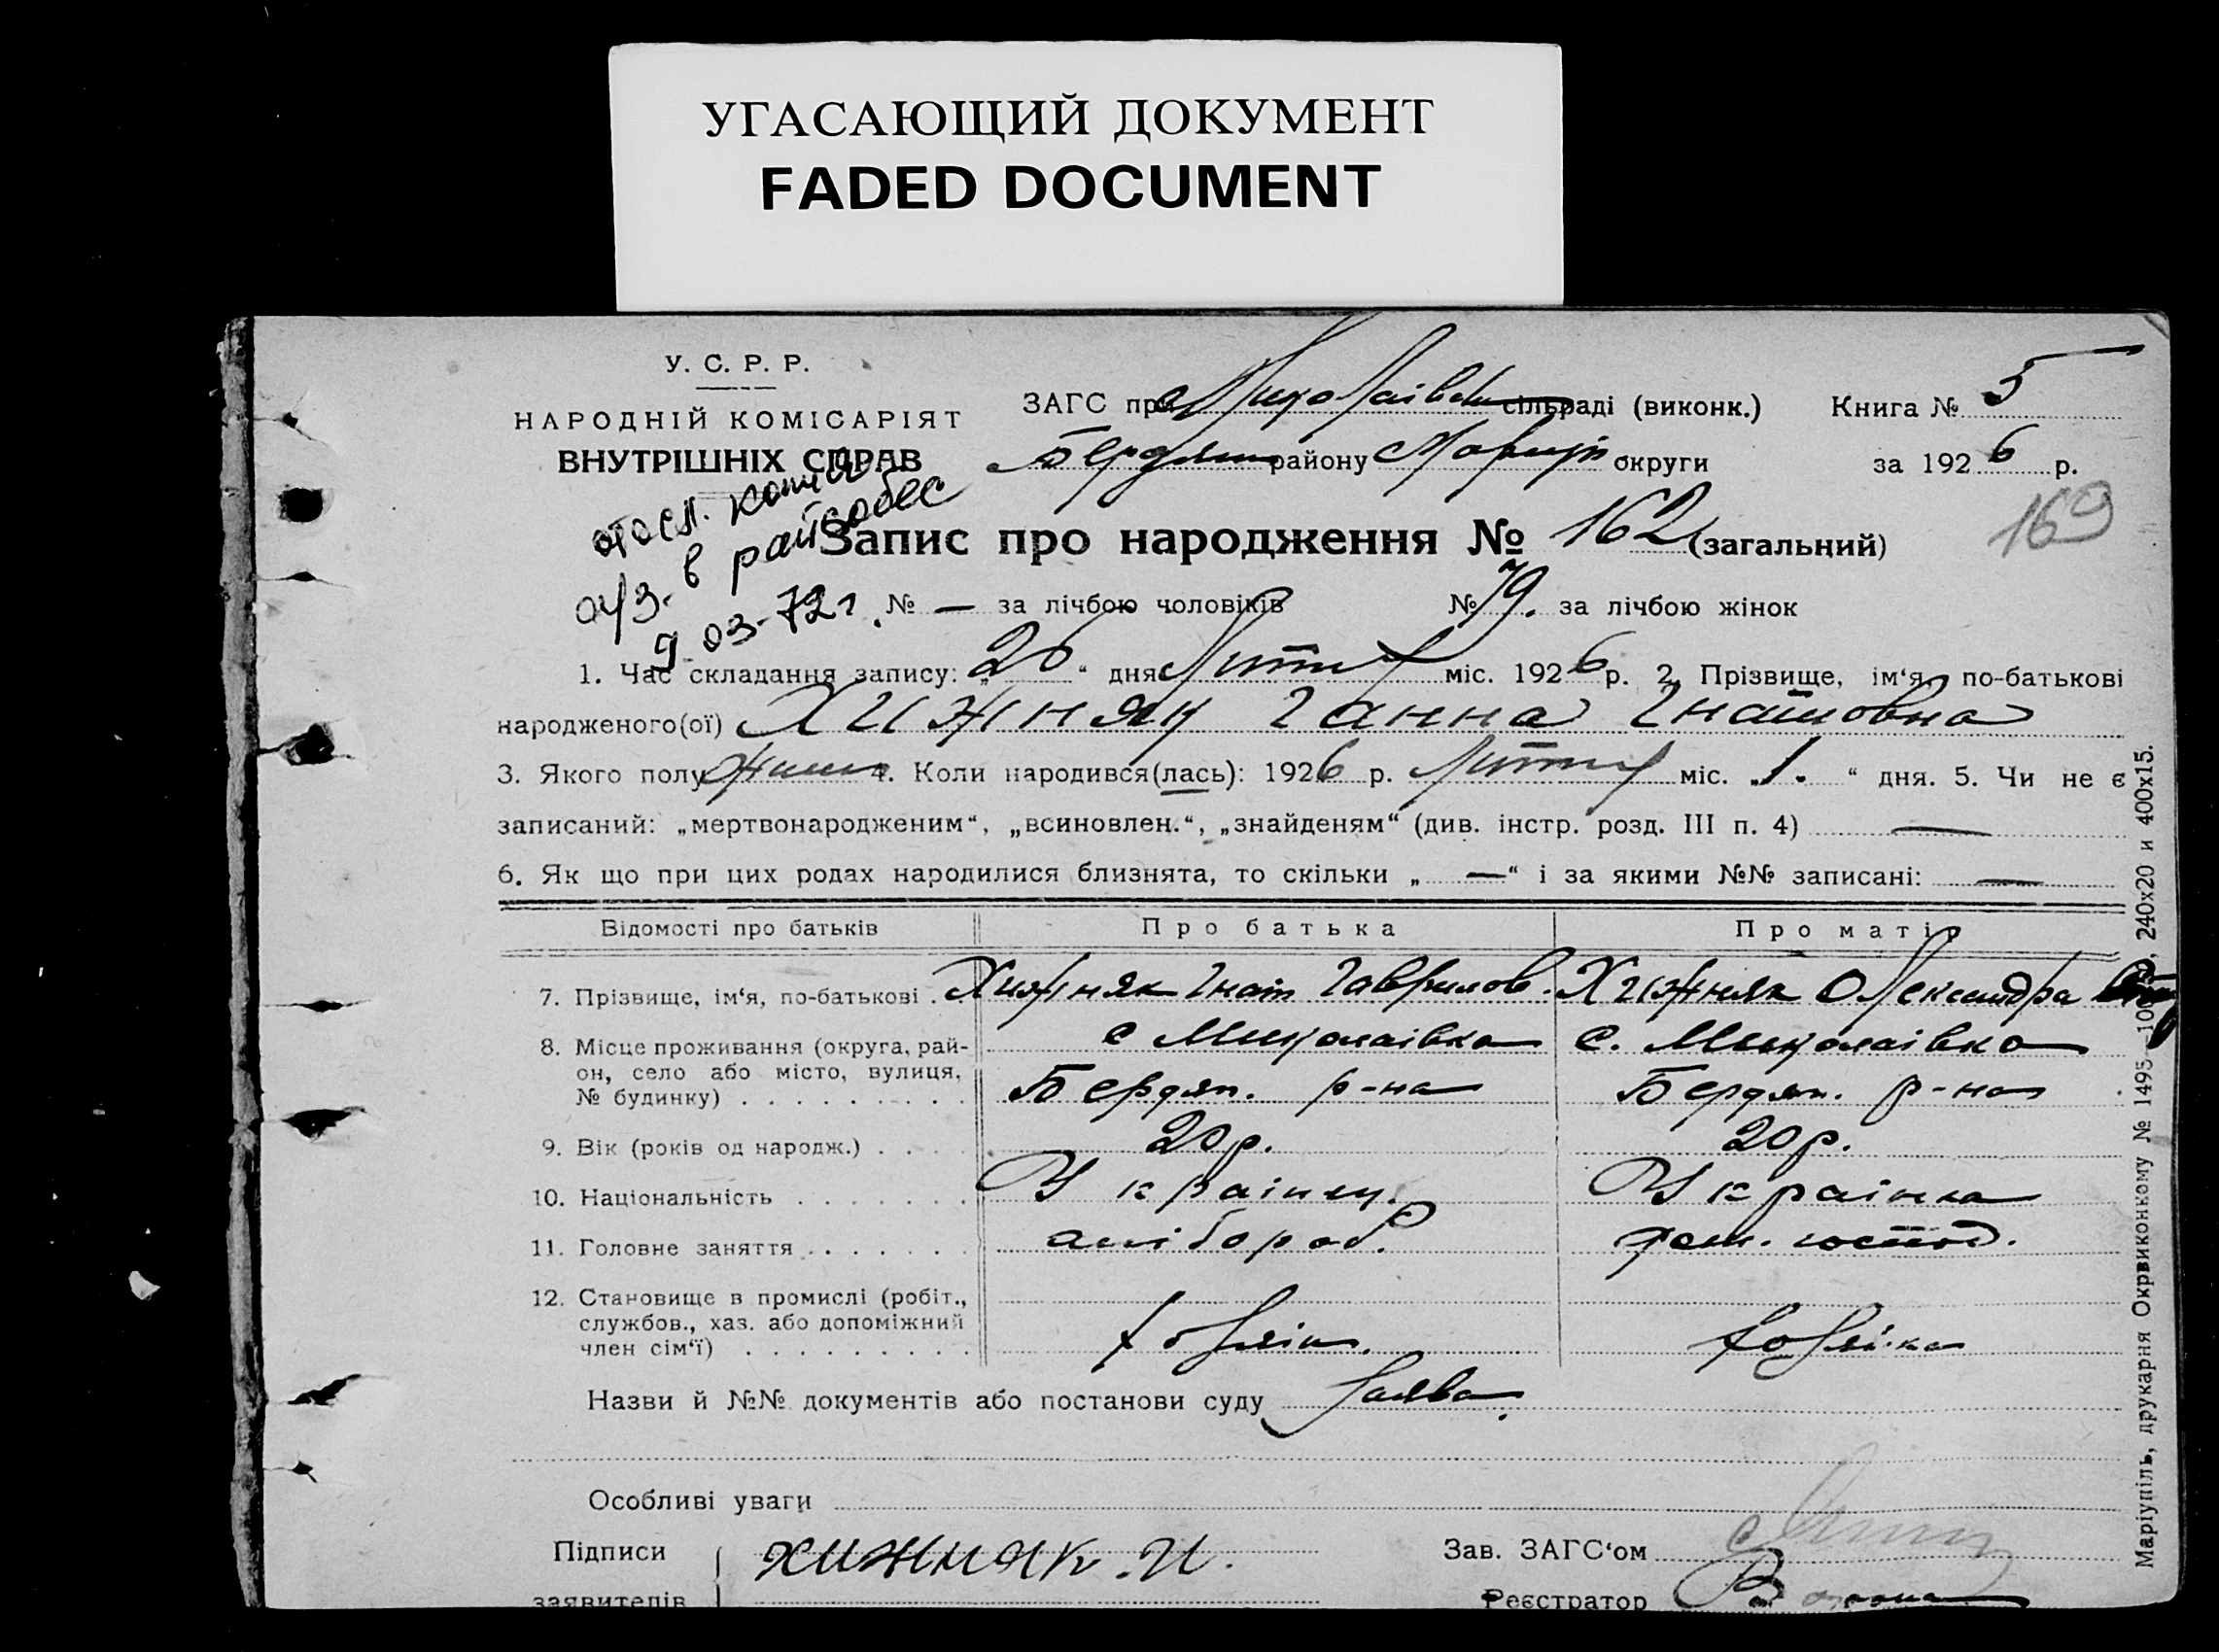 УГАСАЮЩИЙ ДОКУМЕНТ
FADED DOCUMENT
У. С. Р. Р.
НАРОДНІЙ КОМІСАРІЯТ
ВНУТРІШНІХ СПРАВ
ЗАГС при Миколаівськ сільраді (виконк.) Книга № 5
Бердянськ району Маріуп округи за 1926 р.
отосл. копия
о/з. в райсобес
9-03-72г
Запис про народження № 162 (загальний)
169
№ — за лічбою чоловіків № 79. за лічбою жінок
1. Час складання запису: „20“ дня Лютня міс. 1926 р. 2. Прізвище, ім‘я, по-батькові
народженого(ої) Хижняк Ганна Гнатовна
3. Якого полу жіноч 4. Коли народився(лась): 1926 р. Лютня міс. „1.“ дня. 5. Чи не є
записаний: „мертвонародженим“, „всиновлен.“, „знайденям“ (див. інстр. розд. III п. 4) —
6. Як що при цих родах народилися близнята, то скільки „—“ і за якими №№ записані: —
Відомості про батьків Про батька Про матір
7. Прізвище, ім‘я, по-батькові . Хижняк Гнат Гаврилов. Хижняк Олександра
8. Місце проживання (округа, рай- с Миколаівка с. Миколаівка
он, село або місто, вулиця,
№ будинку) . . . . . . . . . Бердян. р-на Бердян. р-на
9. Вік (років од народж.) . . . . 20р. 20р.
10. Національність . . . . . . . Украінец. Украінка
11. Головне заняття . . . . . . . хлібороб. дом. господ.
12. Становище в промислі (робіт.,
службов., хаз. або допоміжний
член сім‘ї) . . . . . . . . . хозяін. хозяйка
Назви й №№ документів або постанови суду Заява.
Особливі уваги
Підписи Хижняк. И. Зав. ЗАГС‘ом
заявителів Реєстратор
Маріупіль, друкарня Окрвиконкому № 1495 240х20 и 400х15.